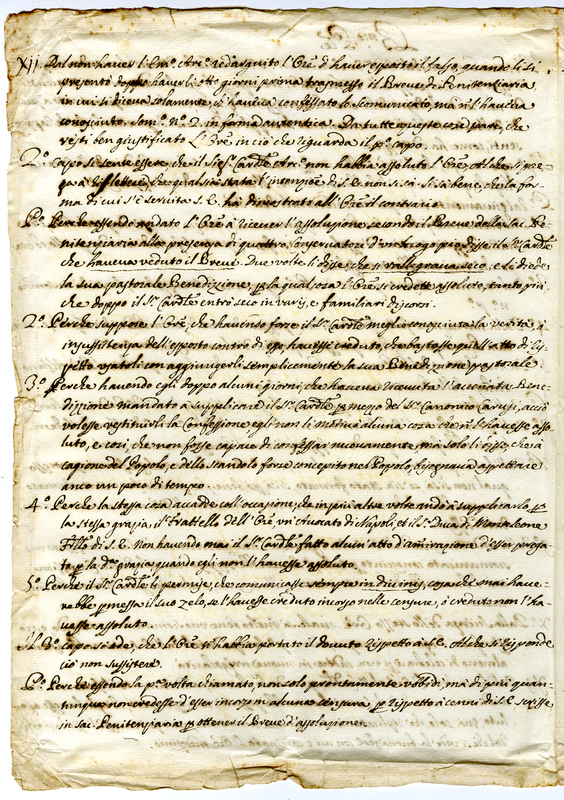 Xij Dal non haver l'Em.º Arc.º redarguito l'Ore. d'haver esposto il falso, quando li si
presentò doppo haverli otto giorni prima trasmesso il Breve di Penitentiaria
in cui si diceva solamente, ch'haveva confessato lo scomunicato, ma no l'haveva
conosciuto. Som.º N.º 2. in forma autentica. Da tutte queste cose pare, che
resti ben giustificato l'Ore in ciò che riguarda il p.º capo.
2.º Capo si sente essere, che il Sig.r Cardle Arc.º non habbia assoluto l'Ore. Al che si pre-
ga à riflettere, che qual sia stata l'intenz.ne di S.E. non si sà. Si sà bene, che la for-
ma di cui s'è servita S.E. hà dimostrato all'Ore il contrario
P.º Perche essendo andato l'Ore à ricever l'assoluzione secondo il Breve della Sac. Pe-
nitentiaria alla presenza di quattro Conservatori d'un luogo pio disse il S.r Cardle
che haveva veduto il Breve. Due volte li disse, che si rallegrava seco, e li diede
la sua pastorale Benedizione, p la qual cosa l'Ore si credette assoluto, tanto più
che doppo il S.r Cardle entrò seco in varij, e familiari discorsi.
2.º Perche suppose l'Ore, che havendo forse il S.r Cardle meglio conosciuta la verità, ò
insussistenza dell'esposto contro di esso havesse creduto, che bastasse quell'atto di ris-
petto usatoli con aggiungerli semplicemente la sua Benedizione pastorale.
3.º Perche havendo egli doppo alcuni giorni, che haveva ricevuta l'accennata Bene-
dizzione mandato à supplicare il S.r Cardle p mezzo del S.r Canonico Carusi, acciò
volesse restituirli la Confessione egli non li motivò alcuna cosa che no l'havesse asso-
luto, e così, che non fosse capace di confessar nuovamente, mà solo li disse, che à
cagione del Popolo, e dello scandolo forse concepito nel Popolo, bisognava aspettare
anco un poco di tempo.
4.º Perche la stessa cosa accadde coll'occasione, che in più altre volte andò à supplicarlo p
la stessa grazia il Frattello dell'Ore, un Avocato di Napoli, et il S.r Duca di Monteleone
Fitt.lo di S.E. Non havendo mai il S.r Cardle fatto alcun'atto d'amirazione d'esser prega-
to p la d.a grazia quando egli non l'havesse assoluto.
5.º Perche il S.r Cardle li permise, che comunicasse sempre in divinis, cosa che mai have-
rebbe pmessa il suo zelo, se l'havesse creduto incorso nelle censure, ò creduto non l'ha-
vesse assoluto.
Il 3.º capo si ode, che l'Ore no habbia portato il dovuto rispetto à S.E. Al che si risponde
ciò non sussistere.
P.º Perche essendo la p.a volta chiamato, non solo prontamente obbidì, mà di più quan-
tunque non credesse d'esser incorso in alcuna censura p rispetto à cenni di S.E. scrisse
in sac. Penitentiaria p ottener il Breve d'assoluzione.